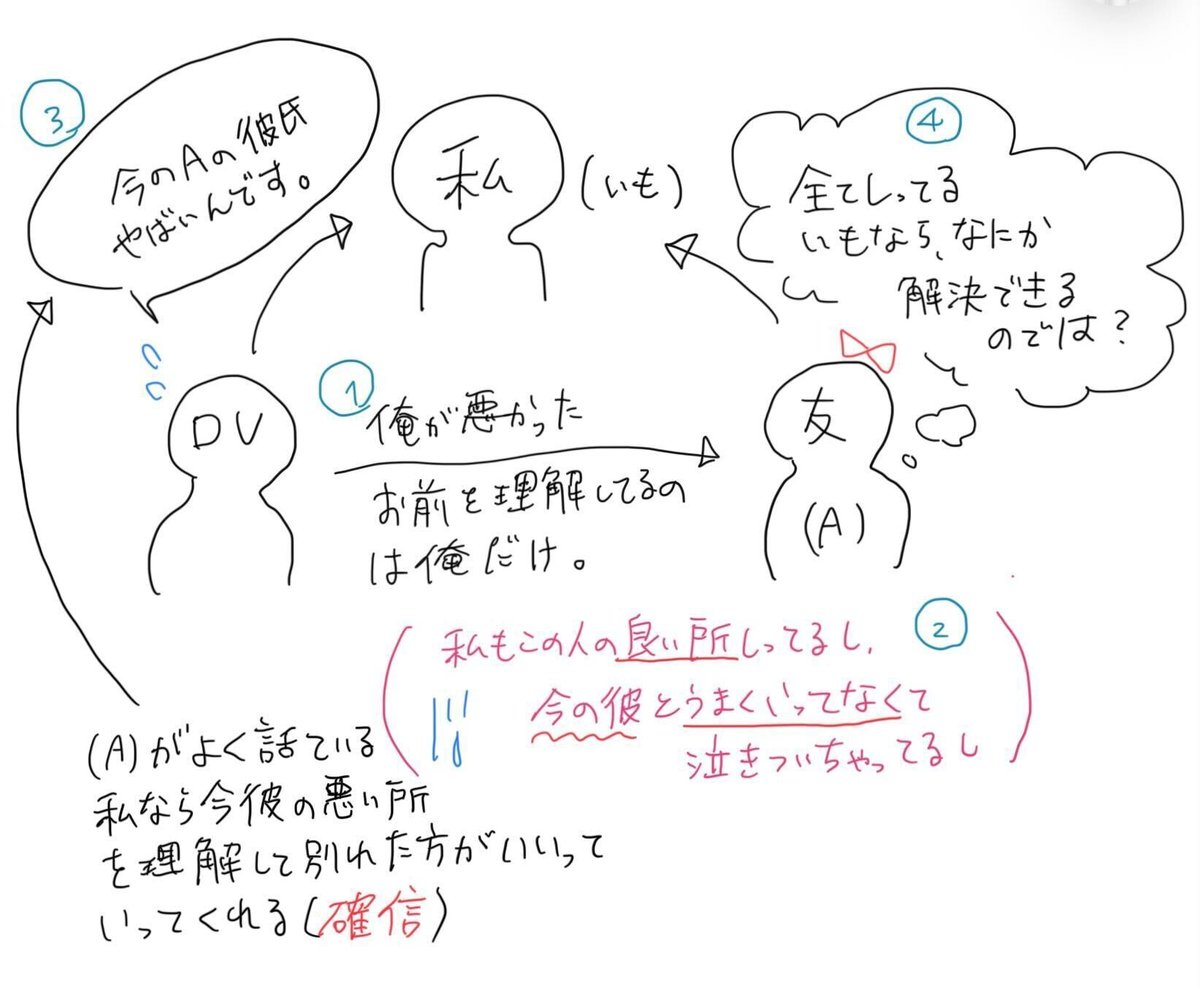 3
今のAの彼氏
やばいんです。
私
(いも)
4
全てしってる
いもなら、なにか
解決できる
のでは?
DV
1
俺が悪かった
お前を理解してるの
は俺だけ。
友
(A)
2
私もこの人の良い所しってるし、
今の彼とうまくいってなくて
泣きついちゃってるし
(A)がよく話ている
私なら今彼の悪い所
を理解して別れた方がいいって
いってくれる(確信)